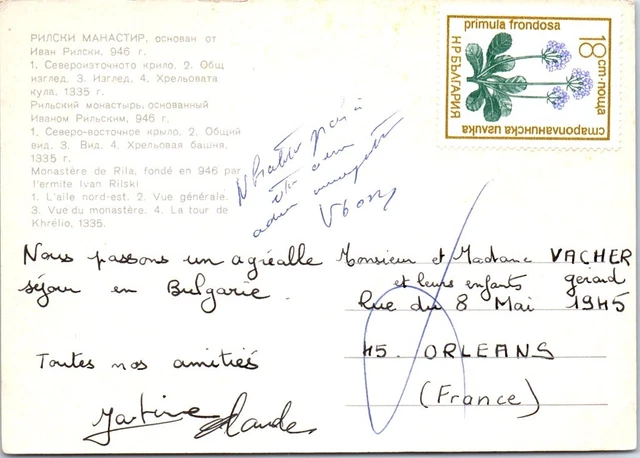 РИЛСКИ МАНАСТИР, основан от
Иван Рилски, 946 г.
1. Североизточното крило. 2. Общ
изглед. 3. Изглед. 4. Хрельовата
кула, 1335 г.
Рильский монастырь, основанный
Иваном Рильским, 946 г.
1. Северо-восточное крыло. 2. Общий
вид. 3. Вид. 4. Хрельовая башня,
1335 г.
Monastère de Rila, fondé en 946 par
l'ermite Ivan Rilski
1. L'aile nord-est. 2. Vue générale.
3. Vue du monastère. 4. La tour de
Khrélio, 1335.
primula frondosa
НР БЪЛГАРИЯ
18 ст·поща
старопланинска иглика
Nous passons un agréable
séjour en Bulgarie.
Toutes nos amitiés
Martine Claude
Monsieur et Madame VACHER
et leurs enfants gérard
Rue du 8 Mai 1945
45. ORLEANS
(France)